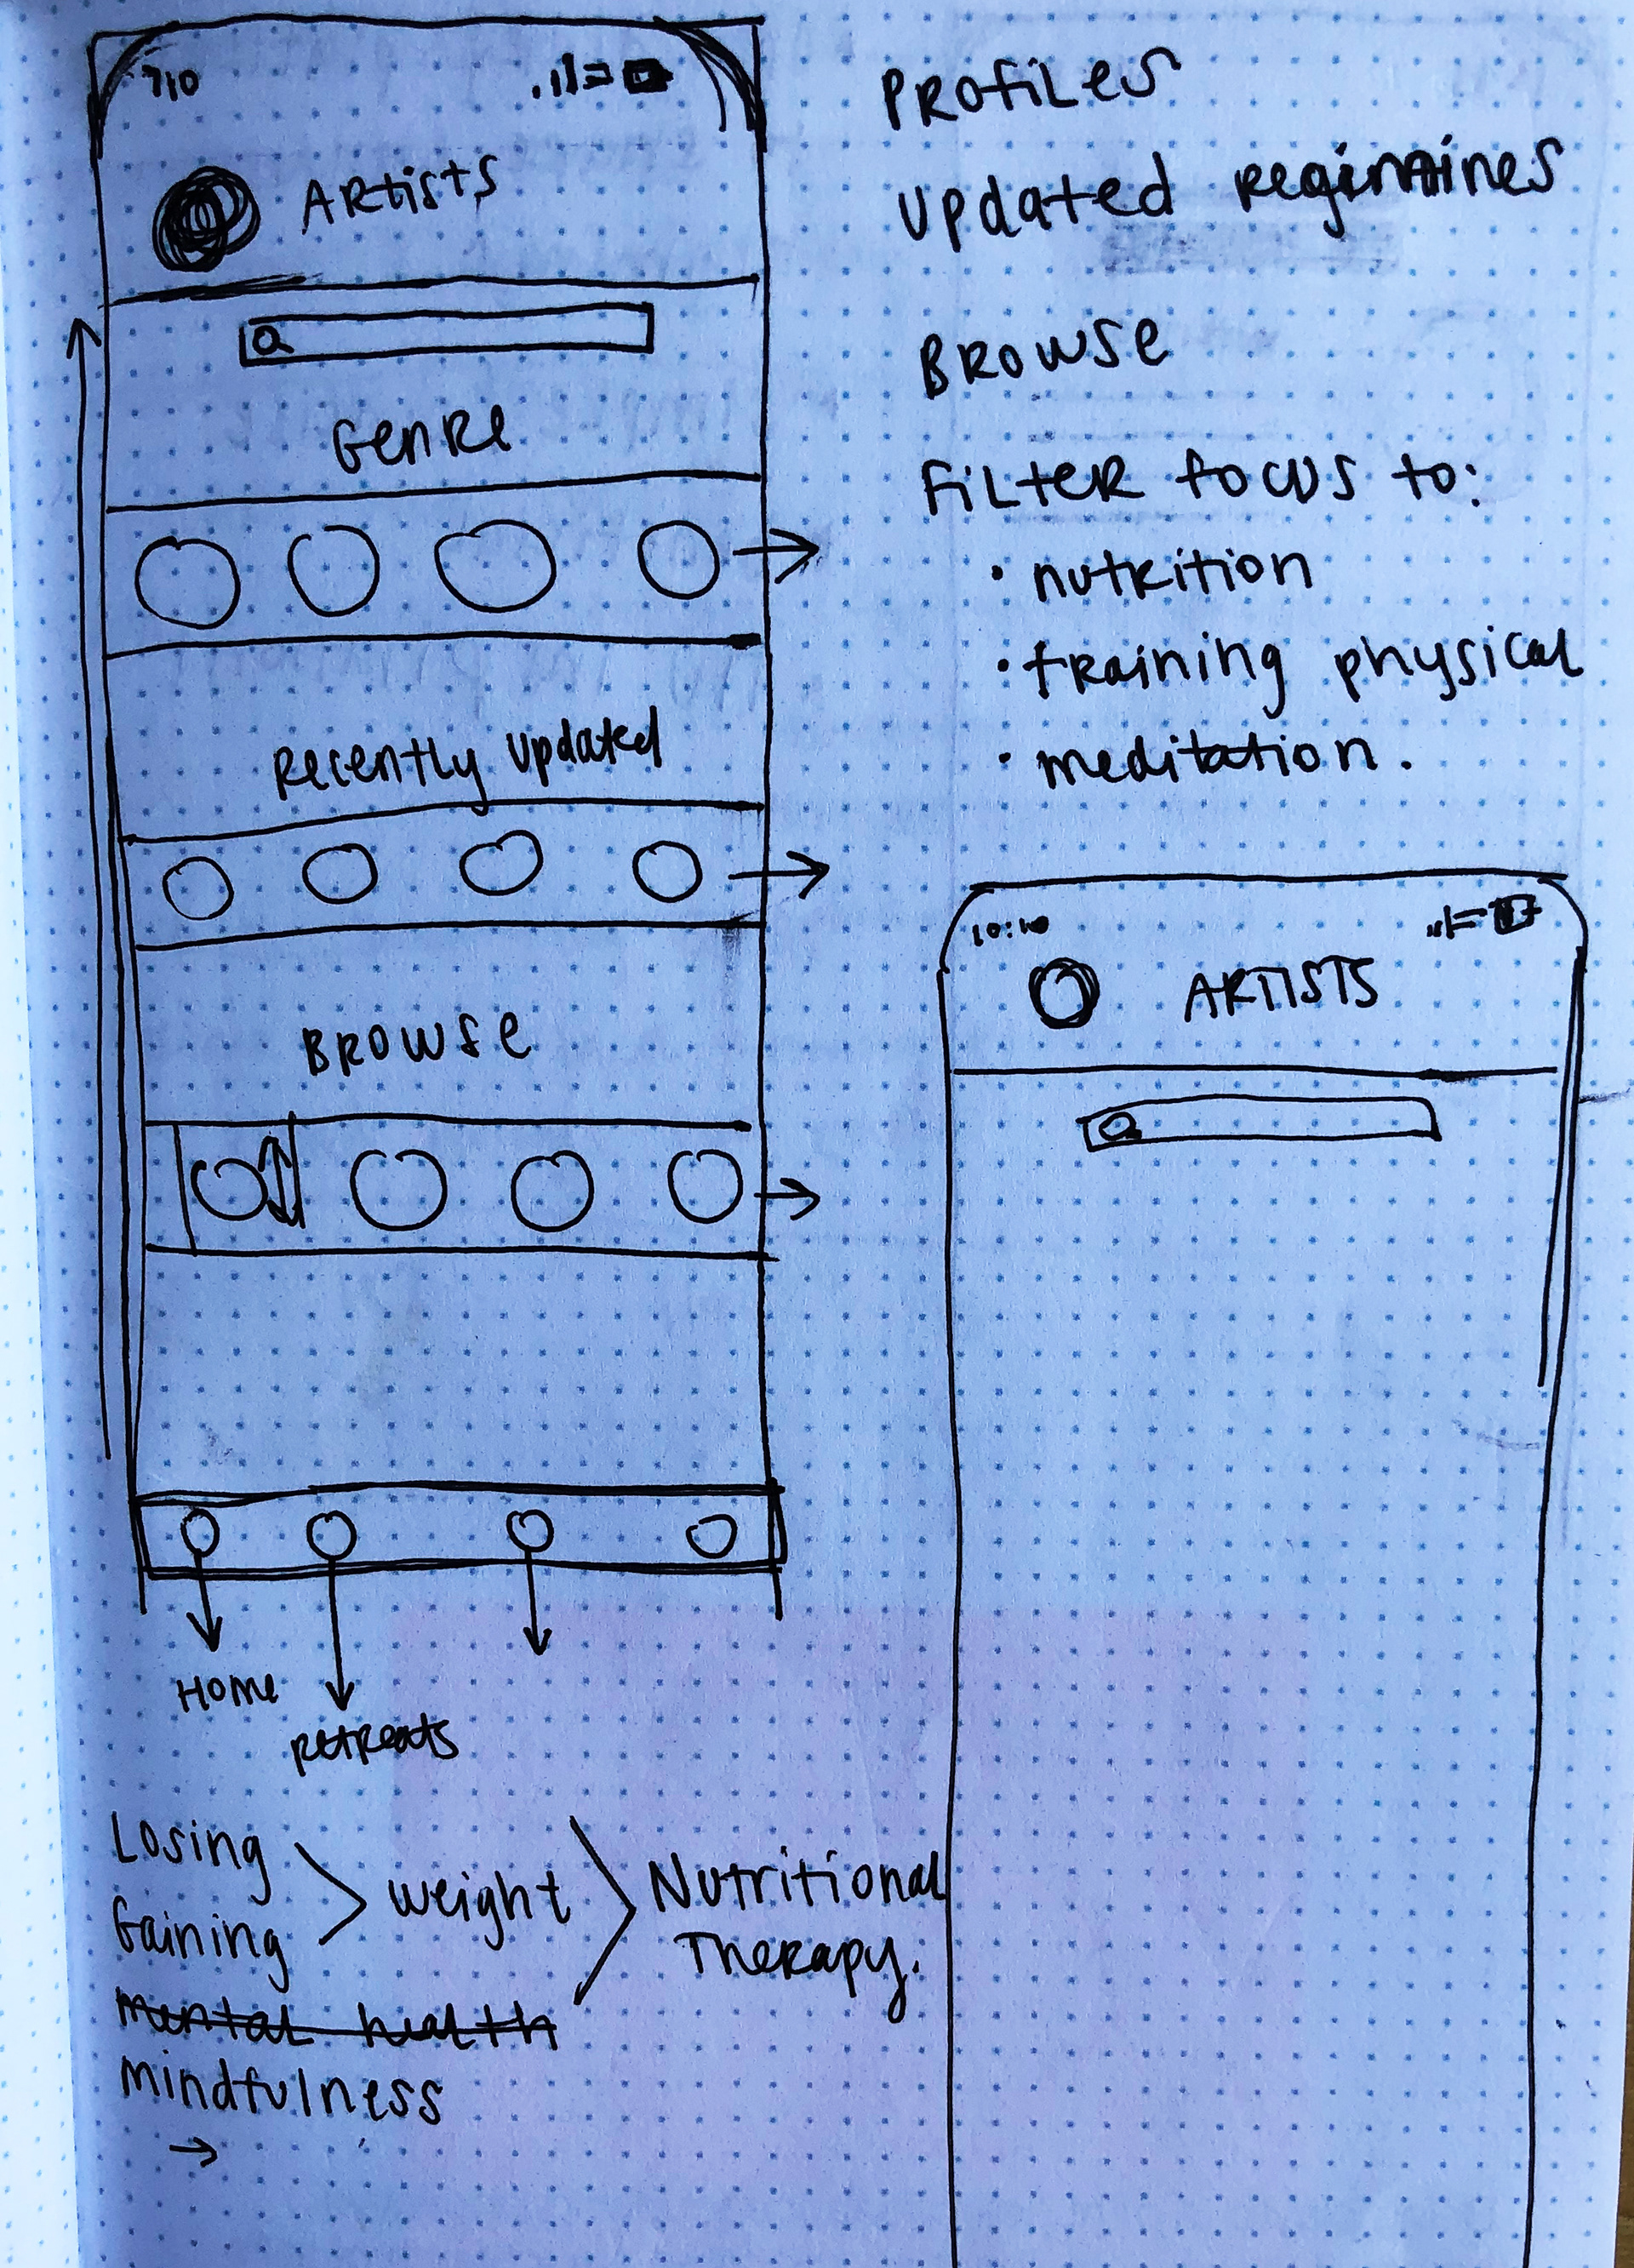 710
Artists
Genre
Recently updated
Browse
Home
retreats
Losing
Gaining
weight
Nutritional
Therapy.
mental health
mindfulness
Profiles
updated regimines
Browse
Filter focus to:
• nutrition
• training physical
• meditation.
10:10
ARTISTS